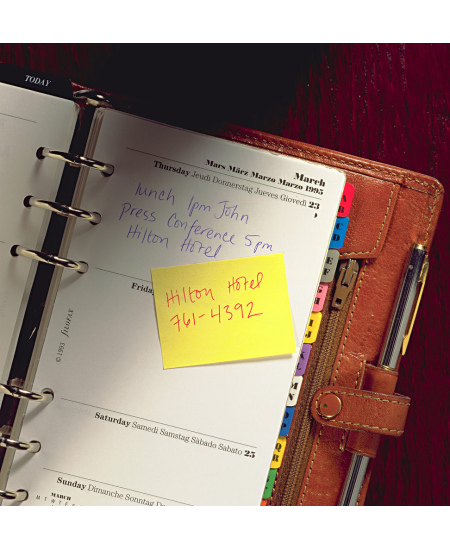 TODAY
March
Mars März Marzo Marzo 1995
Thursday Jeudi Donnerstag Jueves Giovedì 23
lunch 1pm John
Press Conference 5pm
Hilton Hotel
Frida
Hilton Hotel
761-4392
© 1993 FILOFAX
Saturday Samedi Samstag Sàbado Sabato 25
Sunday Dimanche Sonntag Do
MARCH